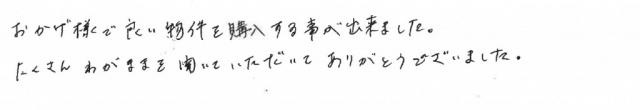 おかげ様で良い物件を購入する事が出来ました。
たくさんわがままを聞いていただいてありがとうございました。